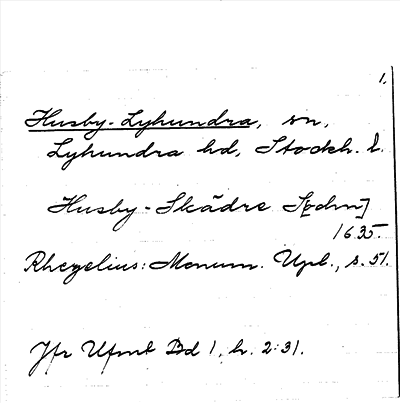 1.
Husby-Lyhundra, sn,
Lyhundra hd, Stockh. l.
Husby-Skädre S[ochn]
1635.
Rhezelius: Monum. Upl., s. 51.
Jfr Ufmt Bd 1, h. 2:31.